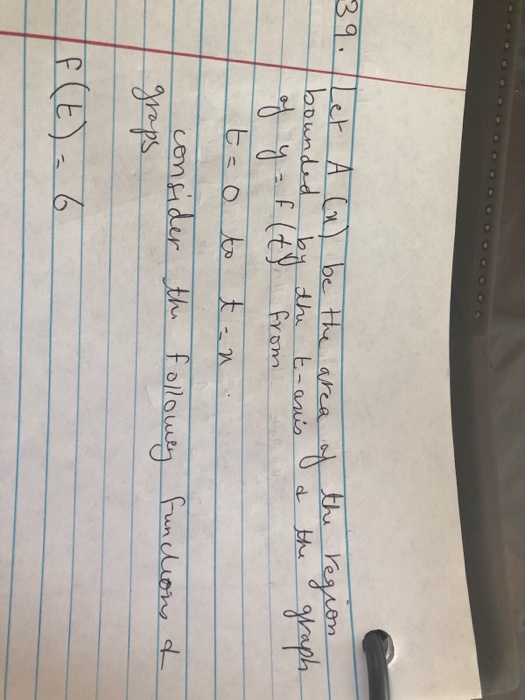 39. Let A (x) be the area of the region
bounded by the t-axis & the graph
of y = f (t) from
t = 0 to t = x.
consider the following functions &
graps
f (t) = 6